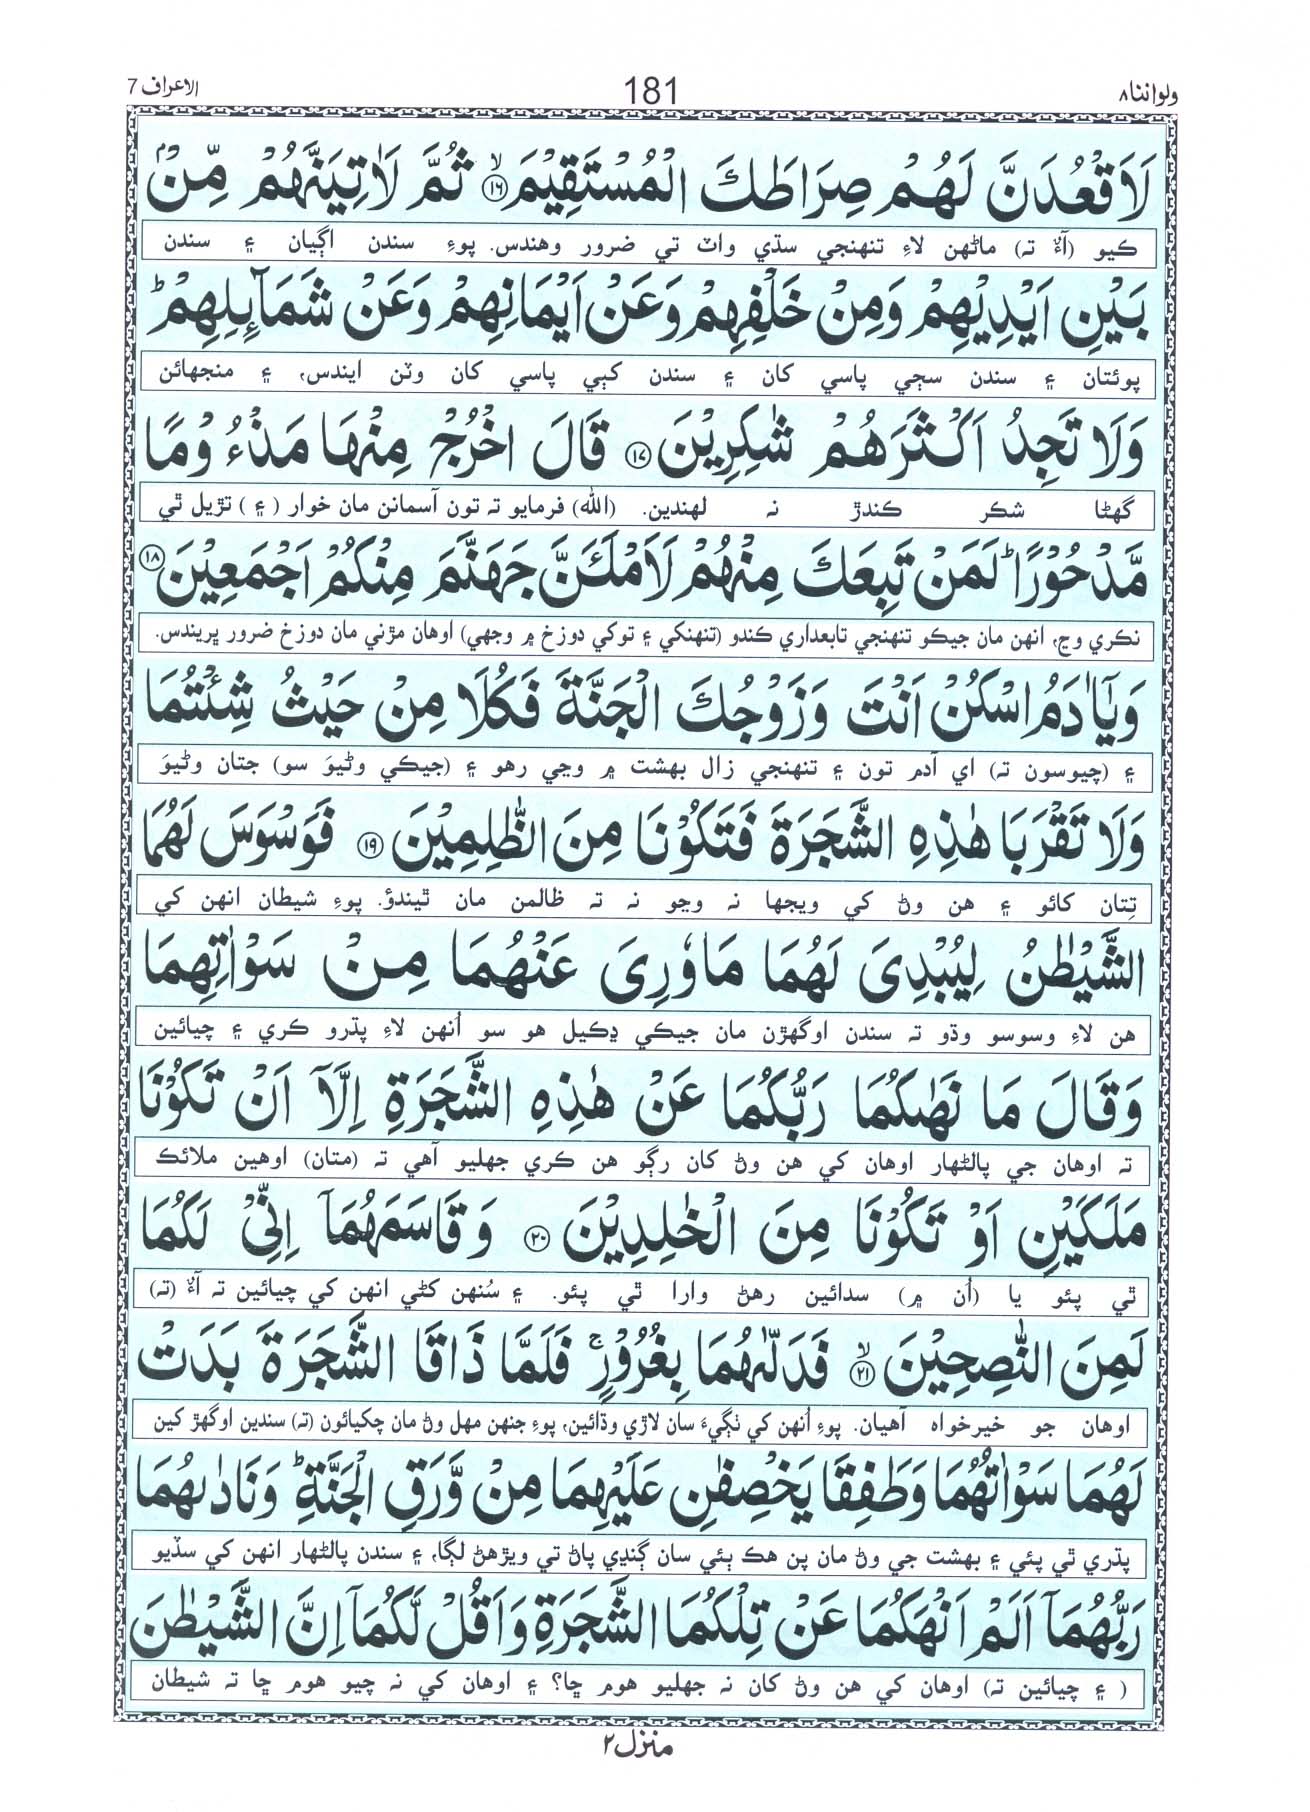 ولواننا ٨
181
الاعراف 7
لَاَقْعُدَنَّ لَهُمْ صِرَاطَكَ الْمُسْتَقِيْمَ ۙ﴿١٦﴾ ثُمَّ لَاٰتِيَنَّهُمْ مِّنْۢ
ڪيو (آءٌ تہ) ماڻهن لاءِ تنهنجي سڌي واٽ تي ضرور وهندس. پوءِ سندن اڳيان ۽ سندن
بَيْنِ اَيْدِيْهِمْ وَمِنْ خَلْفِهِمْ وَعَنْ اَيْمَانِهِمْ وَعَنْ شَمَآئِلِهِمْ ؕ
پوئتان ۽ سندن سڄي پاسي کان ۽ سندن کٻي پاسي کان وٽن ايندس، ۽ منجهائن
وَلَا تَجِدُ اَكْثَرَهُمْ شٰكِرِيْنَ ﴿١٧﴾ قَالَ اخْرُجْ مِنْهَا مَذْءُوْمًا
گهڻا شڪر ڪندڙ نہ لهندين. (الله) فرمايو تہ تون آسمانن مان خوار (۽) تڙيل ٿي
مَّدْحُوْرًا ؕ لَمَنْ تَبِعَكَ مِنْهُمْ لَاَمْلَـَٔنَّ جَهَنَّمَ مِنْكُمْ اَجْمَعِيْنَ ﴿١٨﴾
نڪري وڃ، انهن مان جيڪو تنهنجي تابعداري ڪندو (تنهنکي ۽ توکي دوزخ ۾ وجهي) اوهان مڙني مان دوزخ ضرور ڀريندس.
وَيٰٓاٰدَمُ اسْكُنْ اَنْتَ وَزَوْجُكَ الْجَنَّةَ فَكُلَا مِنْ حَيْثُ شِئْتُمَا
۽ (چيوسون تہ) اي آدم تون ۽ تنهنجي زال بهشت ۾ وڃي رهو ۽ (جيڪي وڻيوَ سو) جتان وڻيوَ
وَلَا تَقْرَبَا هٰذِهِ الشَّجَرَةَ فَتَكُوْنَا مِنَ الظّٰلِمِيْنَ ﴿١٩﴾ فَوَسْوَسَ لَهُمَا
تِتان کائو ۽ هن وڻ کي ويجها نہ وڃو نہ تہ ظالمن مان ٿيندؤ. پوءِ شيطان انهن کي
الشَّيْطٰنُ لِيُبْدِىَ لَهُمَا مَا وٗرِىَ عَنْهُمَا مِنْ سَوْاٰتِهِمَا
هن لاءِ وسوسو وڌو تہ سندن اوگهڙن مان جيڪي ڍڪيل هو سو اُنهن لاءِ پڌرو ڪري ۽ چيائين
وَقَالَ مَا نَهٰىكُمَا رَبُّكُمَا عَنْ هٰذِهِ الشَّجَرَةِ اِلَّآ اَنْ تَكُوْنَا
تہ اوهان جي پالڻهار اوهان کي هن وڻ کان رڳو هن ڪري جهليو آهي تہ (متان) اوهين ملائڪ
مَلَكَيْنِ اَوْ تَكُوْنَا مِنَ الْخٰلِدِيْنَ ﴿٢٠﴾ وَقَاسَمَهُمَآ اِنِّيْ لَكُمَا
ٿي پئو يا (اُن ۾) سدائين رهڻ وارا ٿي پئو. ۽ سُنهن کڻي انهن کي چيائين تہ آءٌ (تہ)
لَمِنَ النّٰصِحِيْنَ ۙ﴿٢١﴾ فَدَلّٰىهُمَا بِغُرُوْرٍ ۚ فَلَمَّا ذَاقَا الشَّجَرَةَ بَدَتْ
اوهان جو خيرخواه آهيان. پوءِ اُنهن کي ٺڳيءَ سان لاڙي وڌائين، پوءِ جنهن مهل وڻ مان چکيائون (تہ) سندين اوگهڙ کين
لَهُمَا سَوْاٰتُهُمَا وَطَفِقَا يَخْصِفٰنِ عَلَيْهِمَا مِنْ وَّرَقِ الْجَنَّةِ ؕ وَنَادٰىهُمَا
پڌري ٿي پئي ۽ بهشت جي وڻ مان پن هڪ ٻئي سان ڳنڍي پاڻ تي ويڙهڻ لڳا، ۽ سندن پالڻهار انهن کي سڏيو
رَبُّهُمَآ اَلَمْ اَنْهَكُمَا عَنْ تِلْكُمَا الشَّجَرَةِ وَاَقُلْ لَّكُمَآ اِنَّ الشَّيْطٰنَ
(۽ چيائين تہ) اوهان کي هن وڻ کان نہ جهليو هوم ڇا؟ ۽ اوهان کي نہ چيو هوم ڇا تہ شيطان
منزل ٢